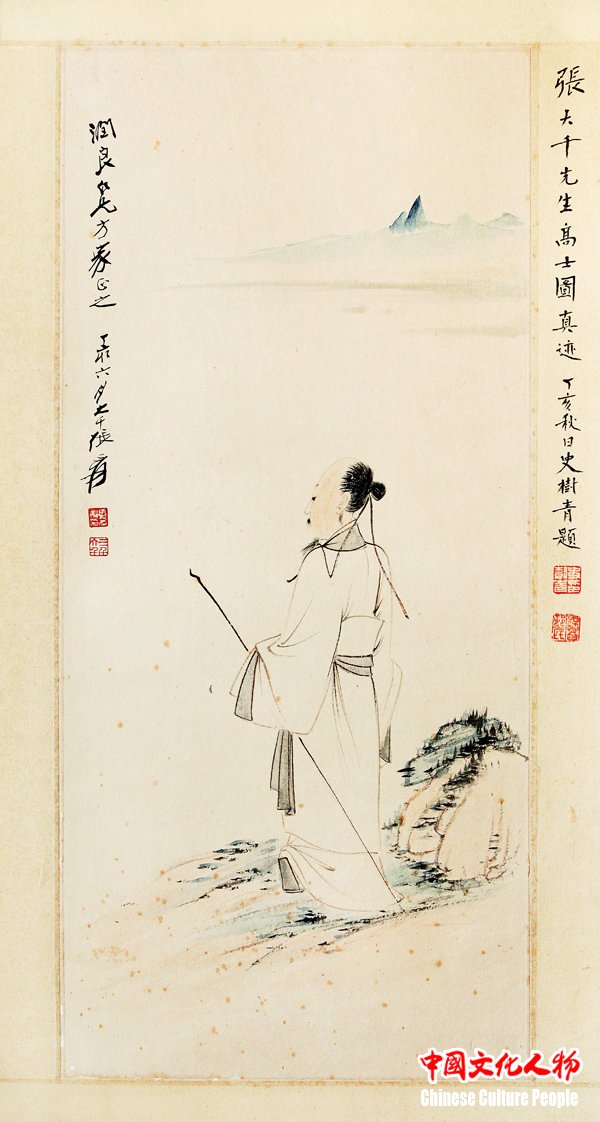 張大千先生高士圖真迹 丁亥秋日史樹青題
潤良兄方家正之
六月大千張爰
中國文化人物
Chinese Culture People